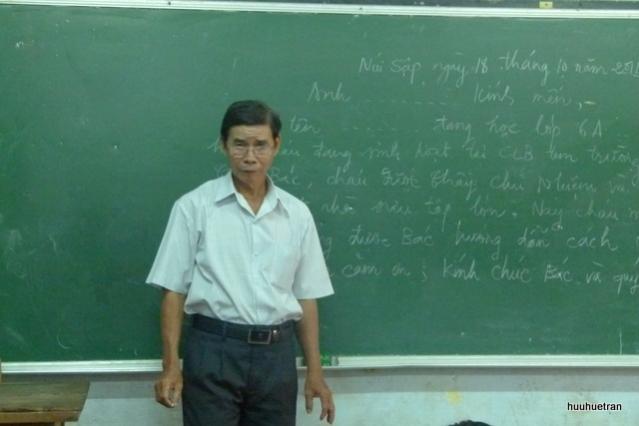 Núi Sập ngày 18 tháng 10 năm 201
Anh ............ kính mến,
tên ............ đang học lớp 6A
đang sinh hoạt tại CLB
Bác, cháu được thầy chủ nhiệm
sưu tập lớn. Nay cháu
được Bác hướng dẫn cách
cảm ơn ; kính chúc Bác và quý
huuhuetran